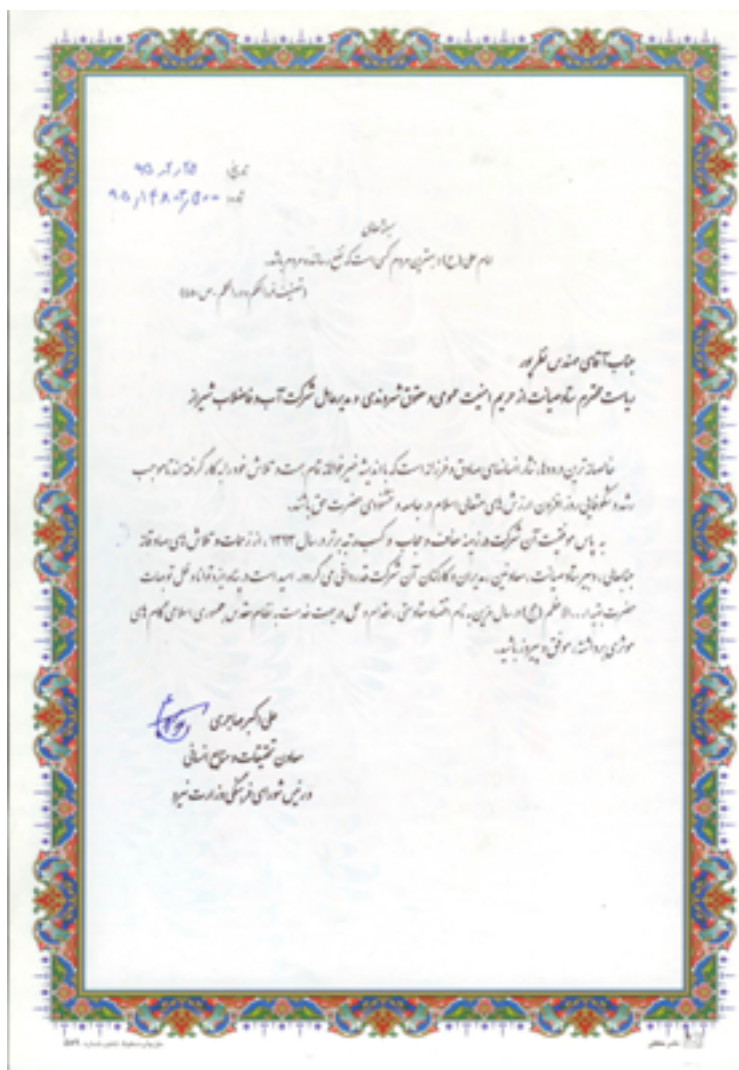 تاریخ: ۹۵,۲,۲۵
۹۵,۱۴۸۰۲,۵۰۰
بسمه تعالی
امام علی (ع): بهترین مردم کسی است که نفع رساننده به مردم باشد.
جناب آقای مهندس نظرپور
ریاست محترم ستاد صیانت از حریم امنیت عمومی و حقوق شهروندی و مدیرعامل شرکت آب و فاضلاب شیراز
خالصانه ترین درودها، نثار انسانهای صادق و فرزانه است که با اندیشه خیرخواهانه تمام همت و تلاش خود را به کار گرفته اند تا موجب
رشد و شکوفایی روز افزون ارزش های متعالی اسلام در جامعه و خشنودی حضرت حق باشند.
به پاس موفقیت آن شرکت در زمینه عفاف و حجاب و کسب رتبه برتر در سال ۱۳۹۳، از زحمات و تلاش های صادقانه
جنابعالی، دبیر ستاد صیانت، معاونین، مدیران و کارکنان آن شرکت قدردانی می گردد. امید است در پناه ایزد توانا و ظل توجهات
حضرت بقیه ا... الاعظم (عج) در سال مزین به نام اقتصاد مقاومتی، اقدام و عمل در جهت خدمت به نظام مقدس جمهوری اسلامی گام های
موثری برداشته، موفق و پیروز باشید.
علی اکبر مهاجری
معاون تحقیقات و منابع انسانی
و رئیس شورای فرهنگی وزارت نیرو